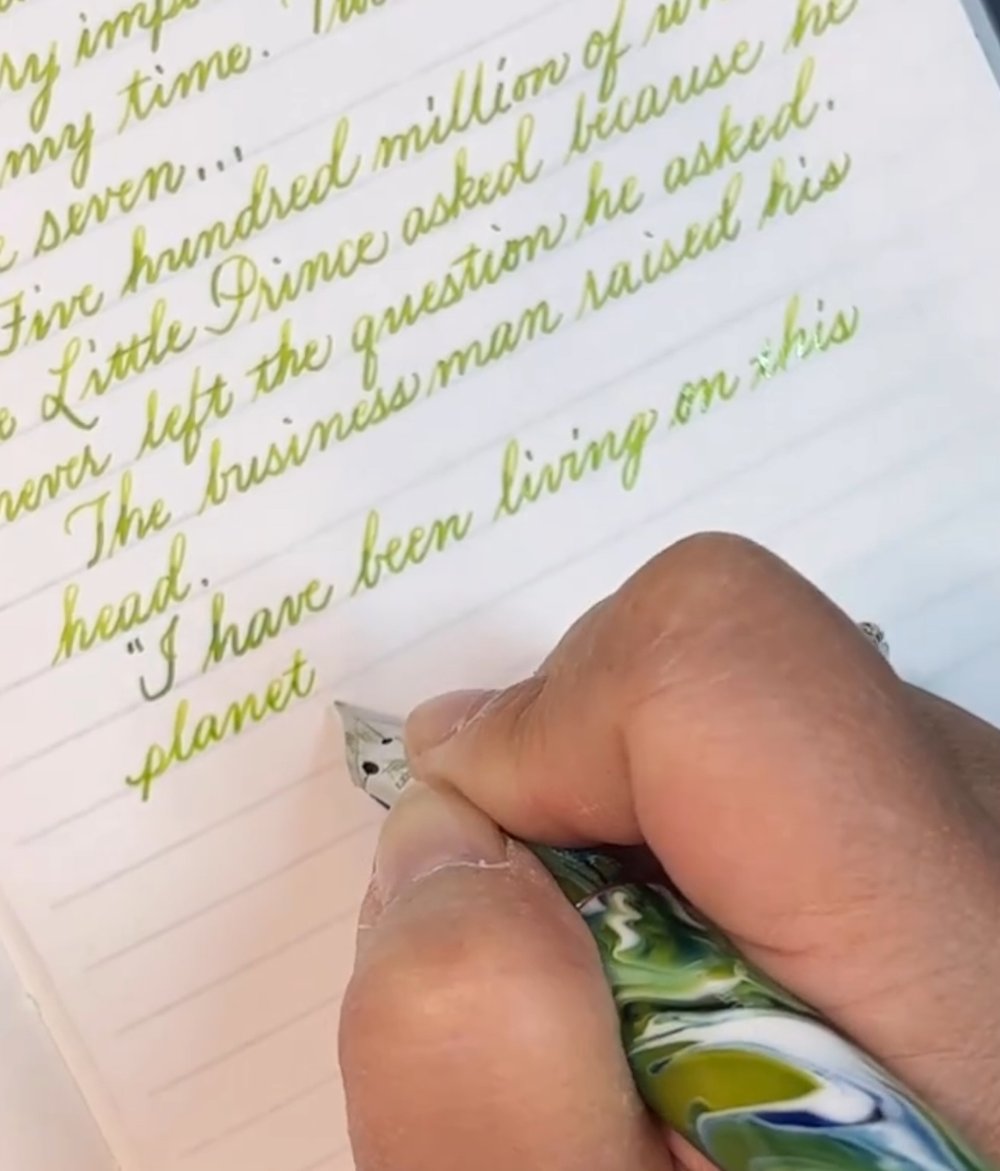 my time.
seven...
Five hundred million of
Little Prince asked because he
never left the question he asked.
The business man raised his
head.
"I have been living on this
planet